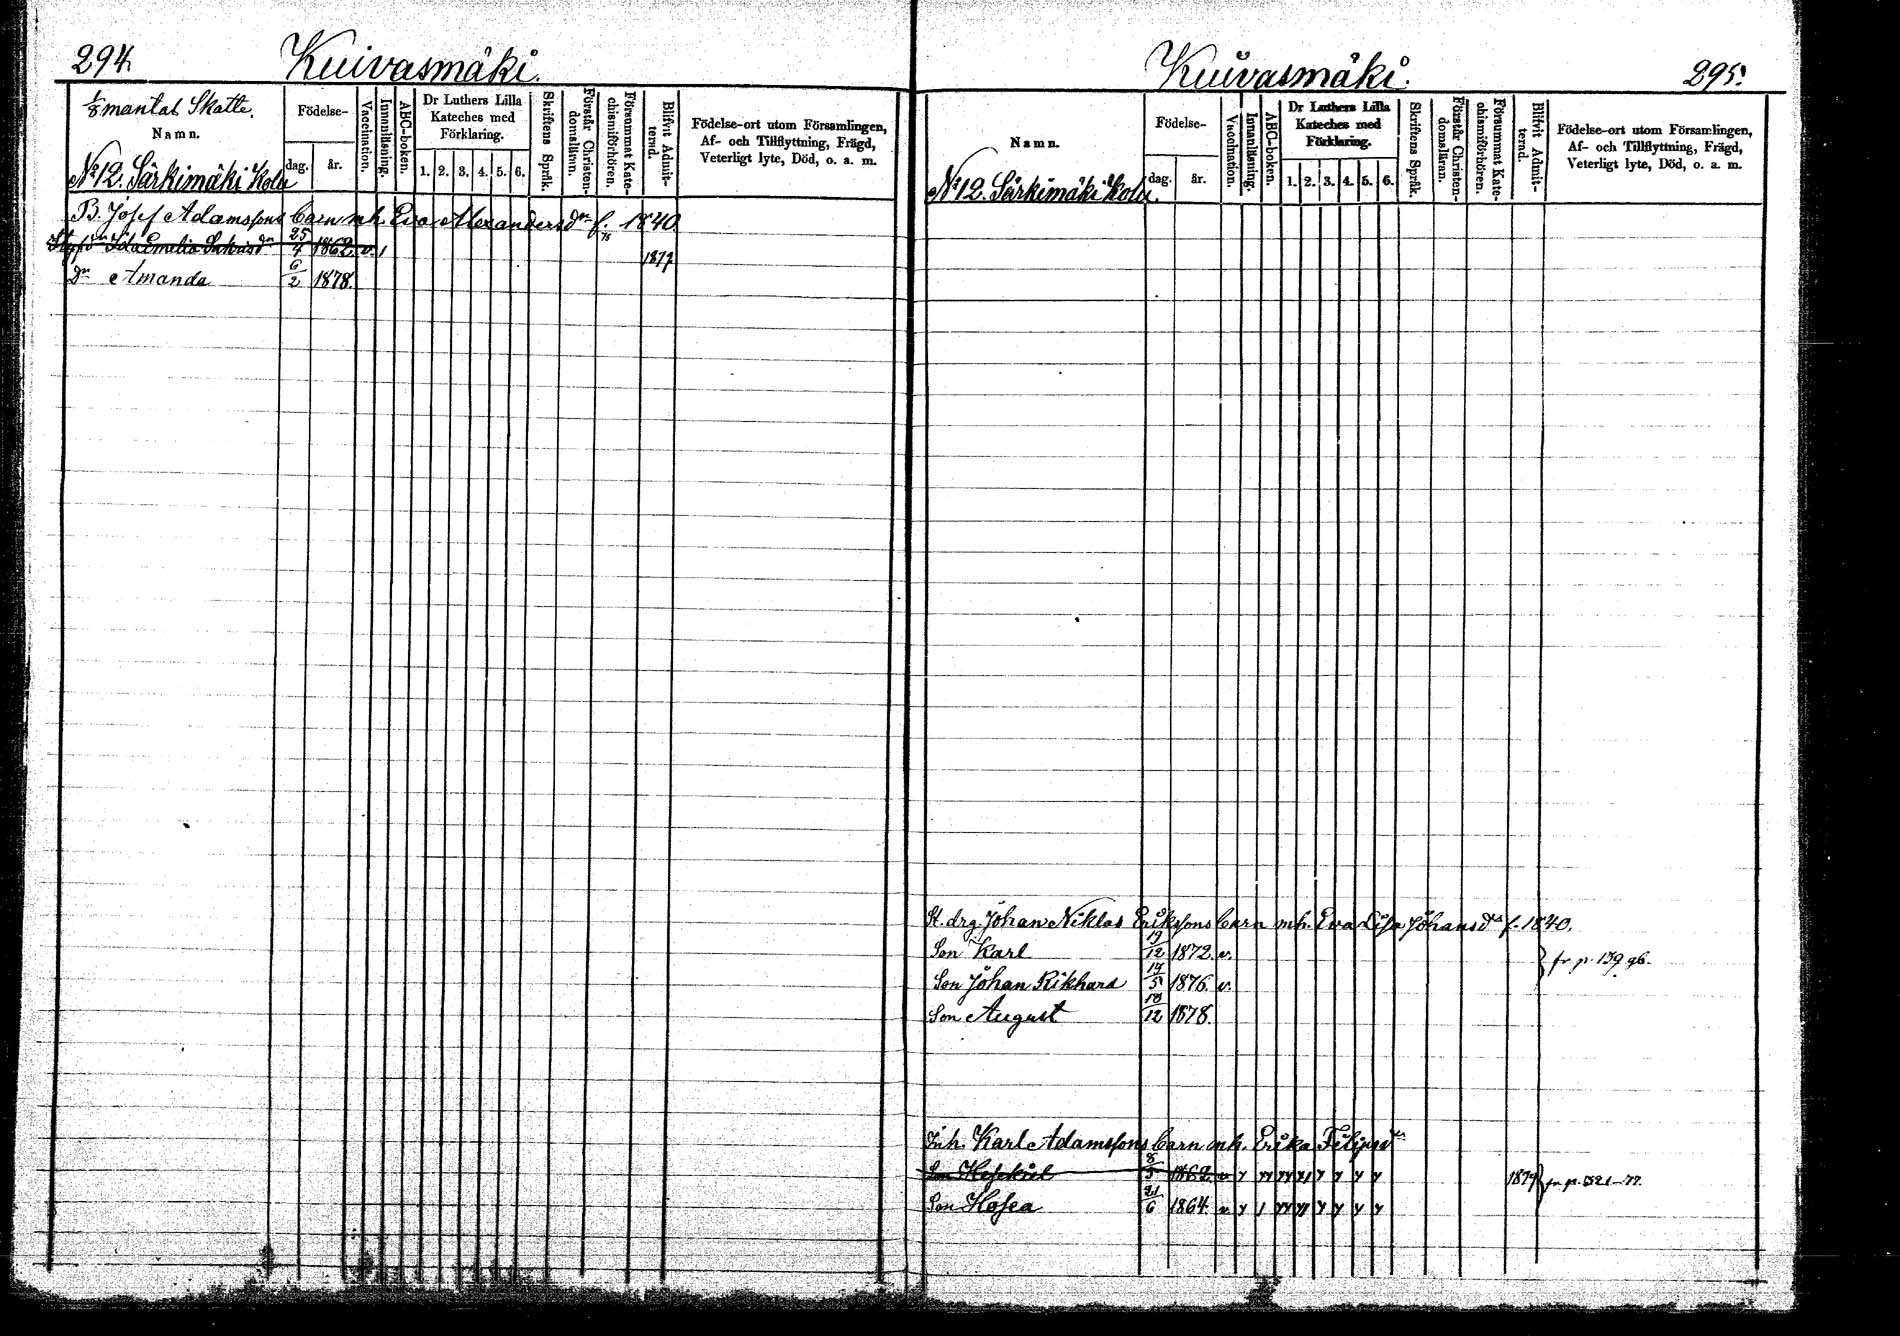 294.
Kuivasmäki.
1/8 mantal Skatte.
Namn.
Födelse-
dag.
år.
Vaccination.
Innanläsning.
ABC-boken.
Dr Luthers Lilla
Kateches med
Förklaring.
1. 2. 3. 4. 5. 6.
Skriftens Språk.
Förstår Christen-
domsläran.
Försummat Kate-
chismiförhören.
Blifvit Admit-
terad.
Födelse-ort utom Församlingen,
Af- och Tillflyttning, Frägd,
Veterligt lyte, Död, o. a. m.
No 12. Särkimäki
B. Josef Adamssons barn mh Eva Alexandersdr f. 1840
Ida Emelia 25/4 1862. v. 1 1877
Dr Amanda 6/2 1878.
Kuivasmäki.
295.
Namn.
Födelse-
dag.
år.
Vaccination.
Innanläsning.
ABC-boken.
Dr Luthers Lilla
Kateches med
Förklaring.
1. 2. 3. 4. 5. 6.
Skriftens Språk.
Förstår Christen-
domsläran.
Försummat Kate-
chismiförhören.
Blifvit Admit-
terad.
Födelse-ort utom Församlingen,
Af- och Tillflyttning, Frägd,
Veterligt lyte, Död, o. a. m.
No 12. Särkimäki
St. drg. Johan Niklas Erikssons barn mh. Eva Lisa Johansdr f. 1840.
Son Karl 19/12 1872. v. fr. p. 139 gb.
Son Johan Rikhard 14/5 1876. v.
Son August 18/12 1878.
Inh. Karl Adamssons barn mh. Erika Filipsdr
Son Hesekiel 8/5 1862. v 1879 fr. p.
Son Hosea 21/6 1864. v